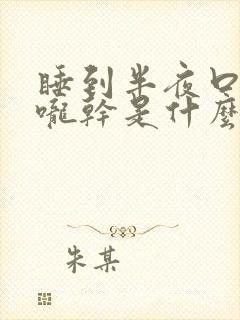 睡到半夜口
嚨幹是什麼
朱某